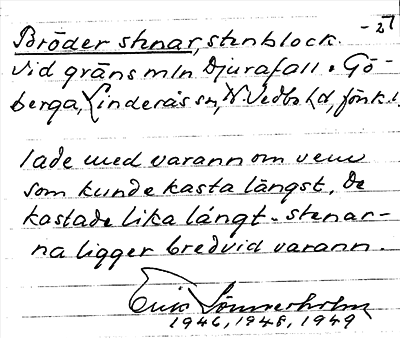 - 27
Bröder stenar, stenblock.
vid gräns mln Djurafall o Gö-
berga, Linderås sn, N. Vedbo hd, Jönk. l.
lade med varann om vem
som kunde kasta längst, De
kastade lika långt - stenar-
na ligger bredvid varann.
Erik Sönnerholm
1946, 1948, 1949